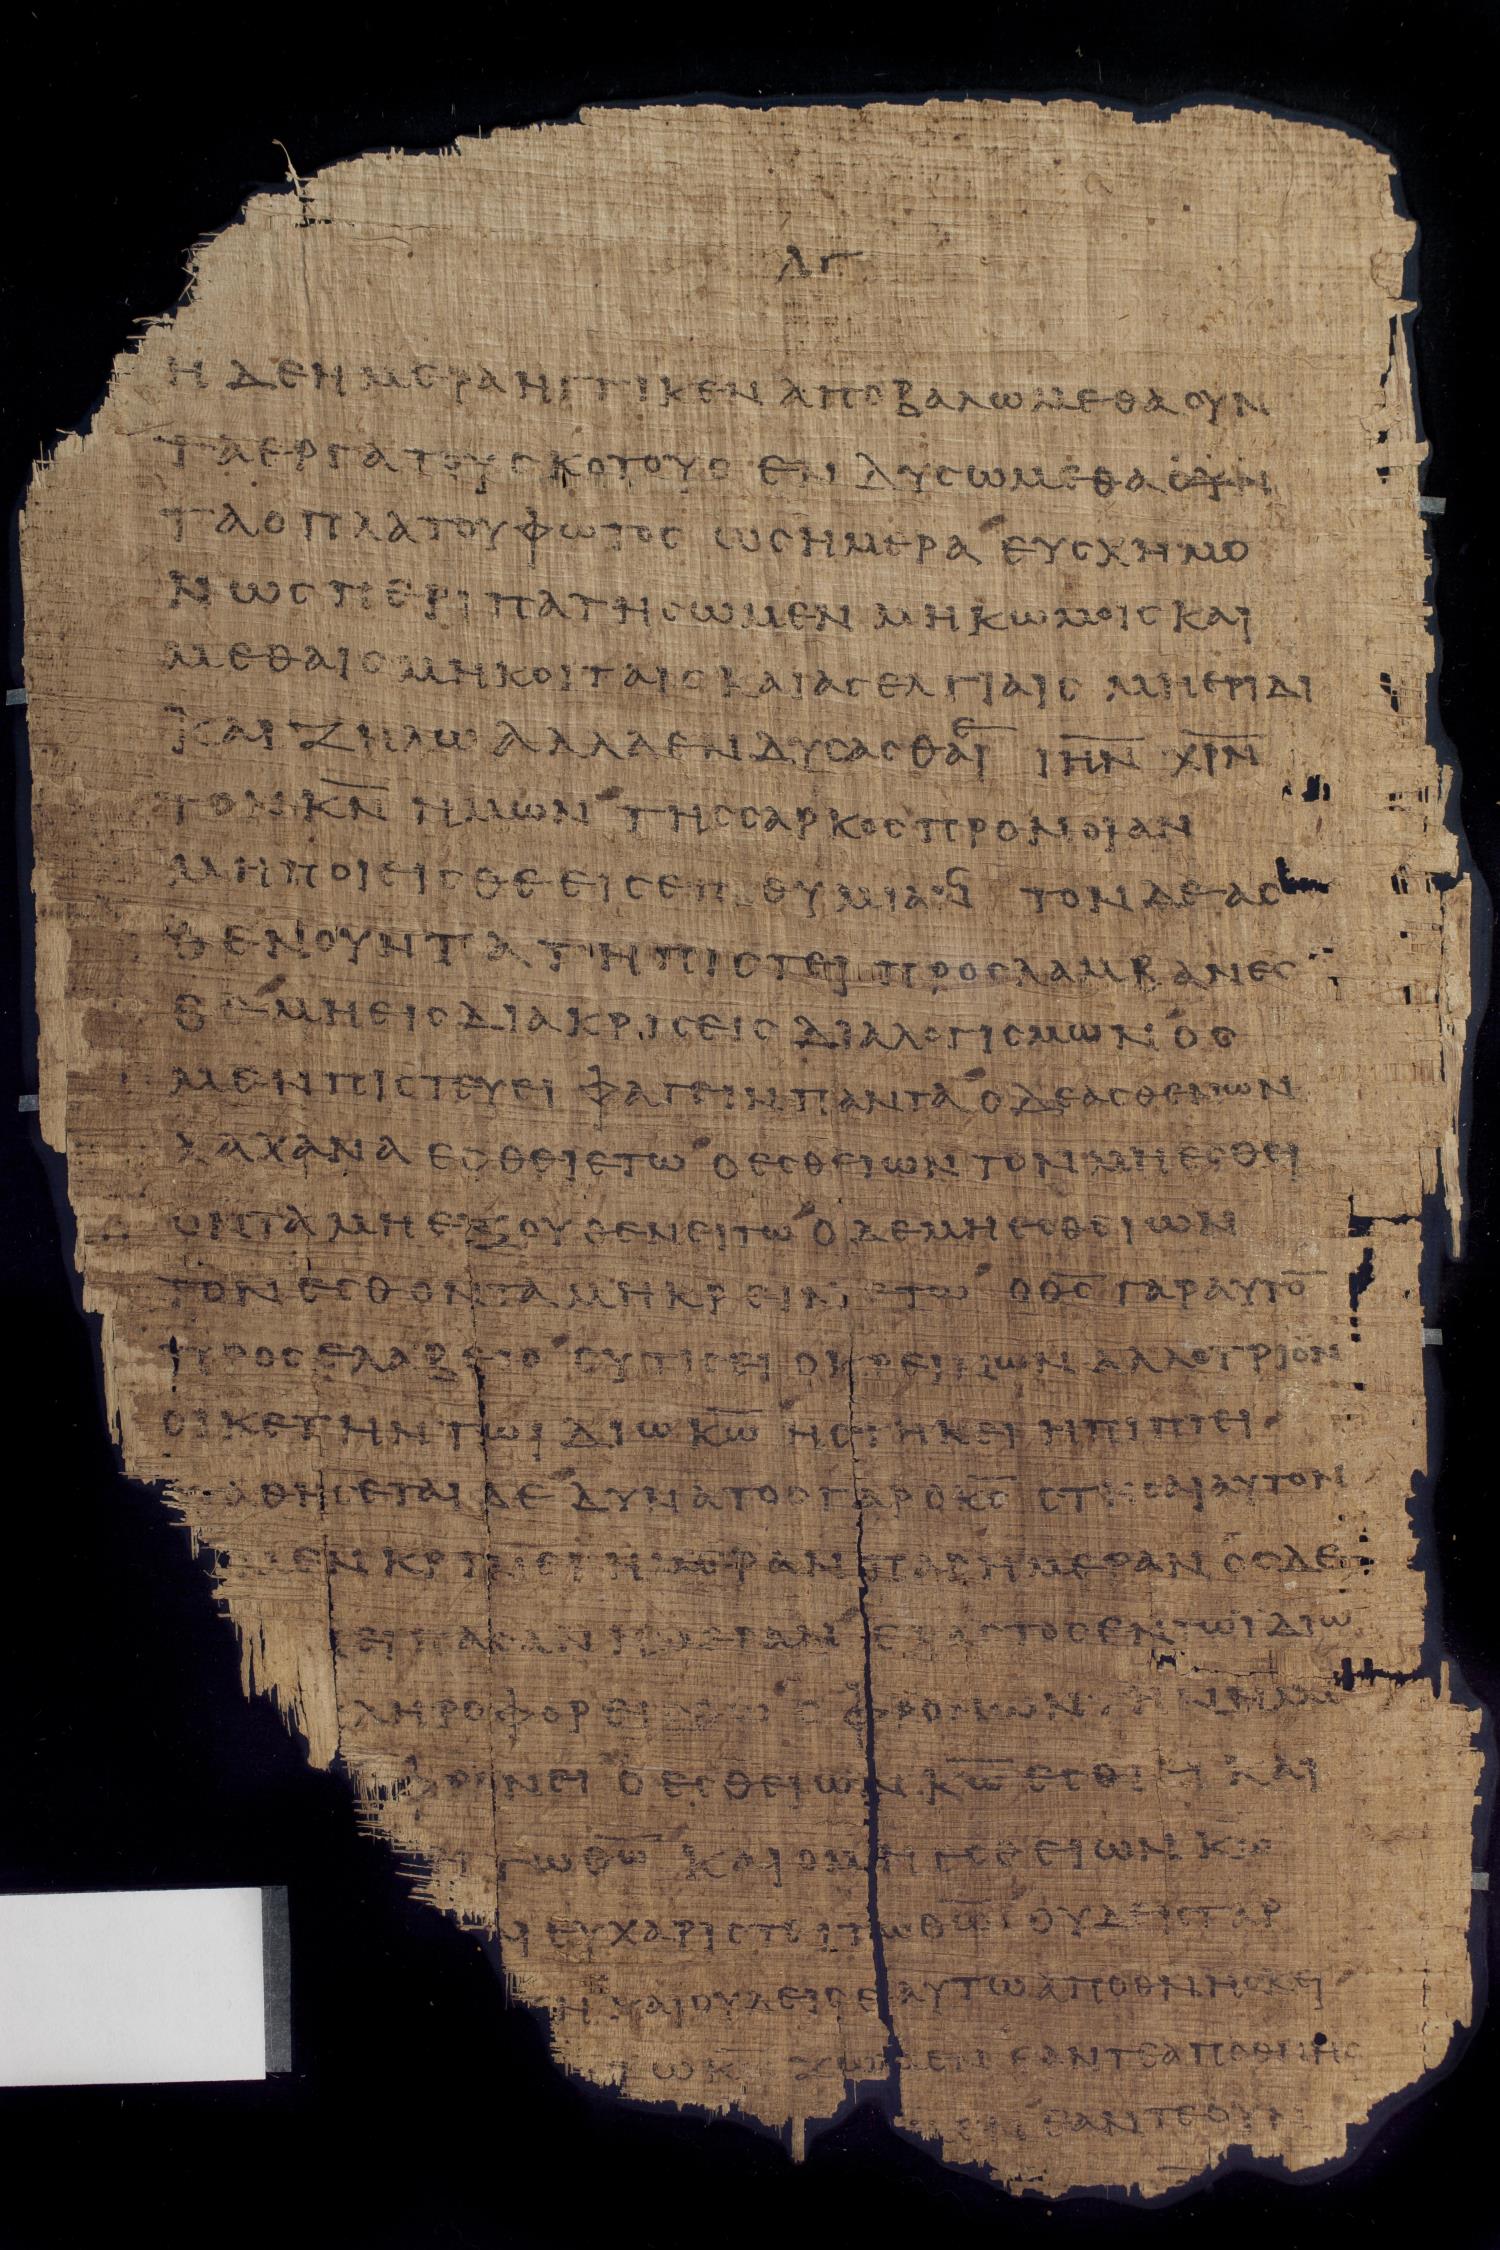 λγ
Η ΔΕ ΗΜΕΡΑ ΗΓΓΙΚΕΝ ΑΠΟΒΑΛΩΜΕΘΑ ΟΥΝ
ΤΑ ΕΡΓΑ ΤΟΥ ΣΚΟΤΟΥΣ ΕΝΔΥΣΩΜΕΘΑ ΟΥΝ
ΤΑ ΟΠΛΑ ΤΟΥ ΦΩΤΟΣ ΩΣ ΗΜΕΡΑ ΕΥΣΧΗΜΟ
ΝΩΣ ΠΕΡΙΠΑΤΗΣΩΜΕΝ ΜΗ ΚΩΜΟΙΣ ΚΑΙ
ΜΕΘΑΙΣ ΜΗ ΚΟΙΤΑΙΣ ΚΑΙ ΑΣΕΛΓΙΑΙΣ ΜΗ ΕΡΙΔΙ
ΚΑΙ ΖΗΛΩ ΑΛΛΑ ΕΝΔΥΣΑΣΘΑΙ ΙΗΝ ΧΡΝ
ΤΟΝ ΚΝ ΗΜΩΝ ΤΗΣ ΣΑΡΚΟΣ ΠΡΟΝΟΙΑΝ
ΜΗ ΠΟΙΕΙΣΘΕ ΕΙΣ ΕΠΙΘΥΜΙΑΣ ΤΟΝ ΔΕ ΑΣ
ΘΕΝΟΥΝΤΑ ΤΗ ΠΙΣΤΕΙ ΠΡΟΣΛΑΜΒΑΝΕΣ
ΘΕ ΜΗ ΕΙΣ ΔΙΑΚΡΙΣΕΙΣ ΔΙΑΛΟΓΙΣΜΩΝ ΟΣ
ΜΕΝ ΠΙΣΤΕΥΕΙ ΦΑΓΕΙΝ ΠΑΝΤΑ Ο ΔΕ ΑΣΘΕΝΩΝ
ΛΑΧΑΝΑ ΕΣΘΕΙΕΤΩ Ο ΕΣΘΕΙΩΝ ΤΟΝ ΜΗ ΕΣΘΕΙ
ΟΝΤΑ ΜΗ ΕΞΟΥΘΕΝΕΙΤΩ Ο ΔΕ ΜΗ ΕΣΘΕΙΩΝ
ΤΟΝ ΕΣΘΟΝΤΑ ΜΗ ΚΡΕΙΝΕΤΩ Ο ΘΣ ΓΑΡ ΑΥΤΟ
ΠΡΟΣΕΛΑΒΕΤΟ ΣΥ ΤΙΣ ΕΙ Ο ΚΡΕΙΝΩΝ ΑΛΛΟΤΡΙΟΝ
ΟΙΚΕΤΗΝ ΤΩ ΙΔΙΩ ΚΩ ΗΣΤΗΚΕΙ Η ΠΙΠΤΕΙ
ΣΤΑΘΗΣΕΤΑΙ ΔΕ ΔΥΝΑΤΟΣ ΓΑΡ Ο ΚΣ ΣΤΗΣΑΙ ΑΥΤΟΝ
ΜΕΝ ΚΡΙΝΕΙ ΗΜΕΡΑΝ ΠΑΡ ΗΜΕΡΑΝ ΟΣ ΔΕ
ΝΕΙ ΠΑΣΑΝ ΗΜΕΡΑΝ ΕΚΑΣΤΟΣ ΕΝ ΤΩ ΙΔΙΩ
ΛΗΡΟΦΟΡΕΙΣΘΩ Ο ΦΡΟΝΩΝ ΤΗΝ ΗΜ
ΦΡΟΝΕΙ Ο ΕΣΘΕΙΩΝ ΚΩ ΕΣΘΙΕΙ ΚΑΙ
ΤΩ ΘΩ ΚΑΙ Ο ΜΗ ΕΣΘΕΙΩΝ ΚΩ
ΕΥΧΑΡΙΣΤΕΙ ΤΩ ΘΩ ΟΥΔΕΙΣ ΓΑΡ
ΖΗ ΚΑΙ ΟΥΔΕΙΣ ΕΑΥΤΩ ΑΠΟΘΝΗΣΚΕΙ
ΤΩ ΚΩ ΖΩΜΕΝ ΕΑΝ ΤΕ ΑΠΟΘΝΗΣ
ΕΑΝ ΤΕ ΟΥΝ